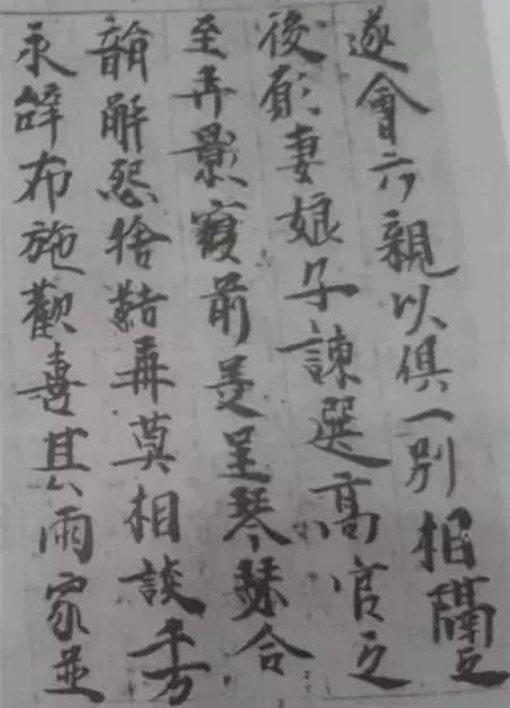 遂會六親以俱一別相隔之
後願妻娘子諫選高官之
至弄影前美呈琴瑟合
韻解怨捨結再莫相談千万
永辞布施歡喜其兩家並